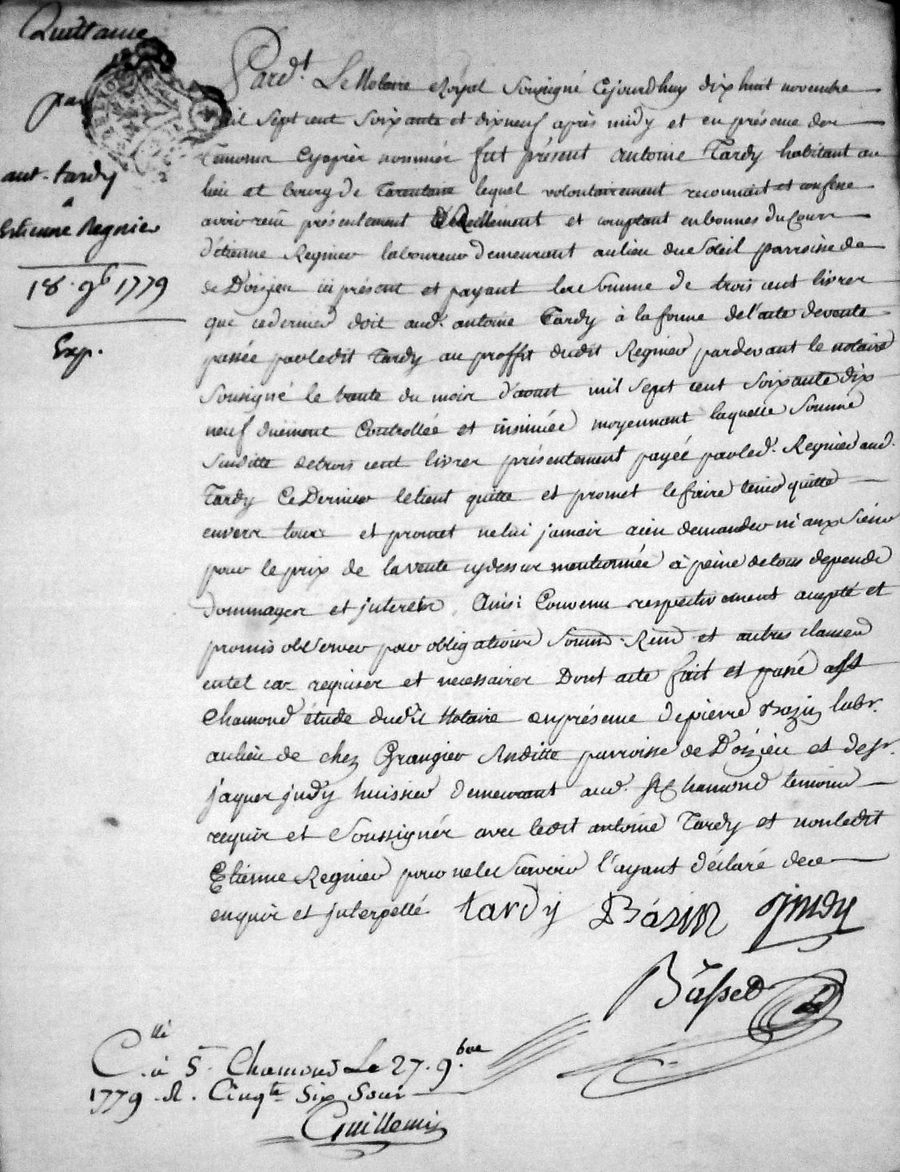 Quittance
par
ant. tardy
a
Estienne Regnier
18. 9b 1779
Exp.
Pardt. Le Notaire Royal Sousigné Cejourdhuy dix huit novembre
mil Sept cent Soixante et dixneuf après midy et en présence des
Témoins Cyaprès nommés fut présent antoine Tardy habitant au
lieu et bourg de Tarentaise lequel volontairement reconnait et confesse
avoir reçu présentement Réellement et comptant en bonnes du Cours
d'étienne Regnier laboureur demeurant au lieu du Soleil parroisse de
de Doizieu ici présent et payant la Somme de trois cent livres
que ce dernier doit aud. antoine Tardy à la forme de l'acte de vente
passée par ledit Tardy au proffit dudit Regnier pardevant le notaire
Sousigné le trante du mois d'aout mil Sept cent Soixante dix
neuf duëment Controllée et insinuée moyennant laquelle Somme
Susditte de trois cent livres présentement payée par led. Regnier aud.
Tardy Ce Dernier le tient quitte et promet le faire tenir quitte
envers tous et promet ne lui jamais rien demander ni aux Siens
pour le prix de la vente cydessus mentionnée à peine de tous depends
dommages et interets. Ainsi Convenu respectivement acepté et
promis observer pour obligations Soumis. Renon. et autres clauses
en tel cas requises et necessaires Dont acte fait et passé a St
Chamond étude dudit Notaire en présence de pierre Bazin labr.
au lieu de chez Grangier Susditte parroisse de Doizieu et de Sr.
jaques judy huissier demeurant aud. St Chamond temoins
requis et Soussignés avec ledit antoine Tardy et non ledit
Etienne Regnier pour ne le Sçavoir l'ayant déclaré de ce
enquis et interpellé tardy Básin Jjudy
C.llé à St Chamond Le 27. 9.bre
1779 R. Cinqte Six Sous
Guillemin